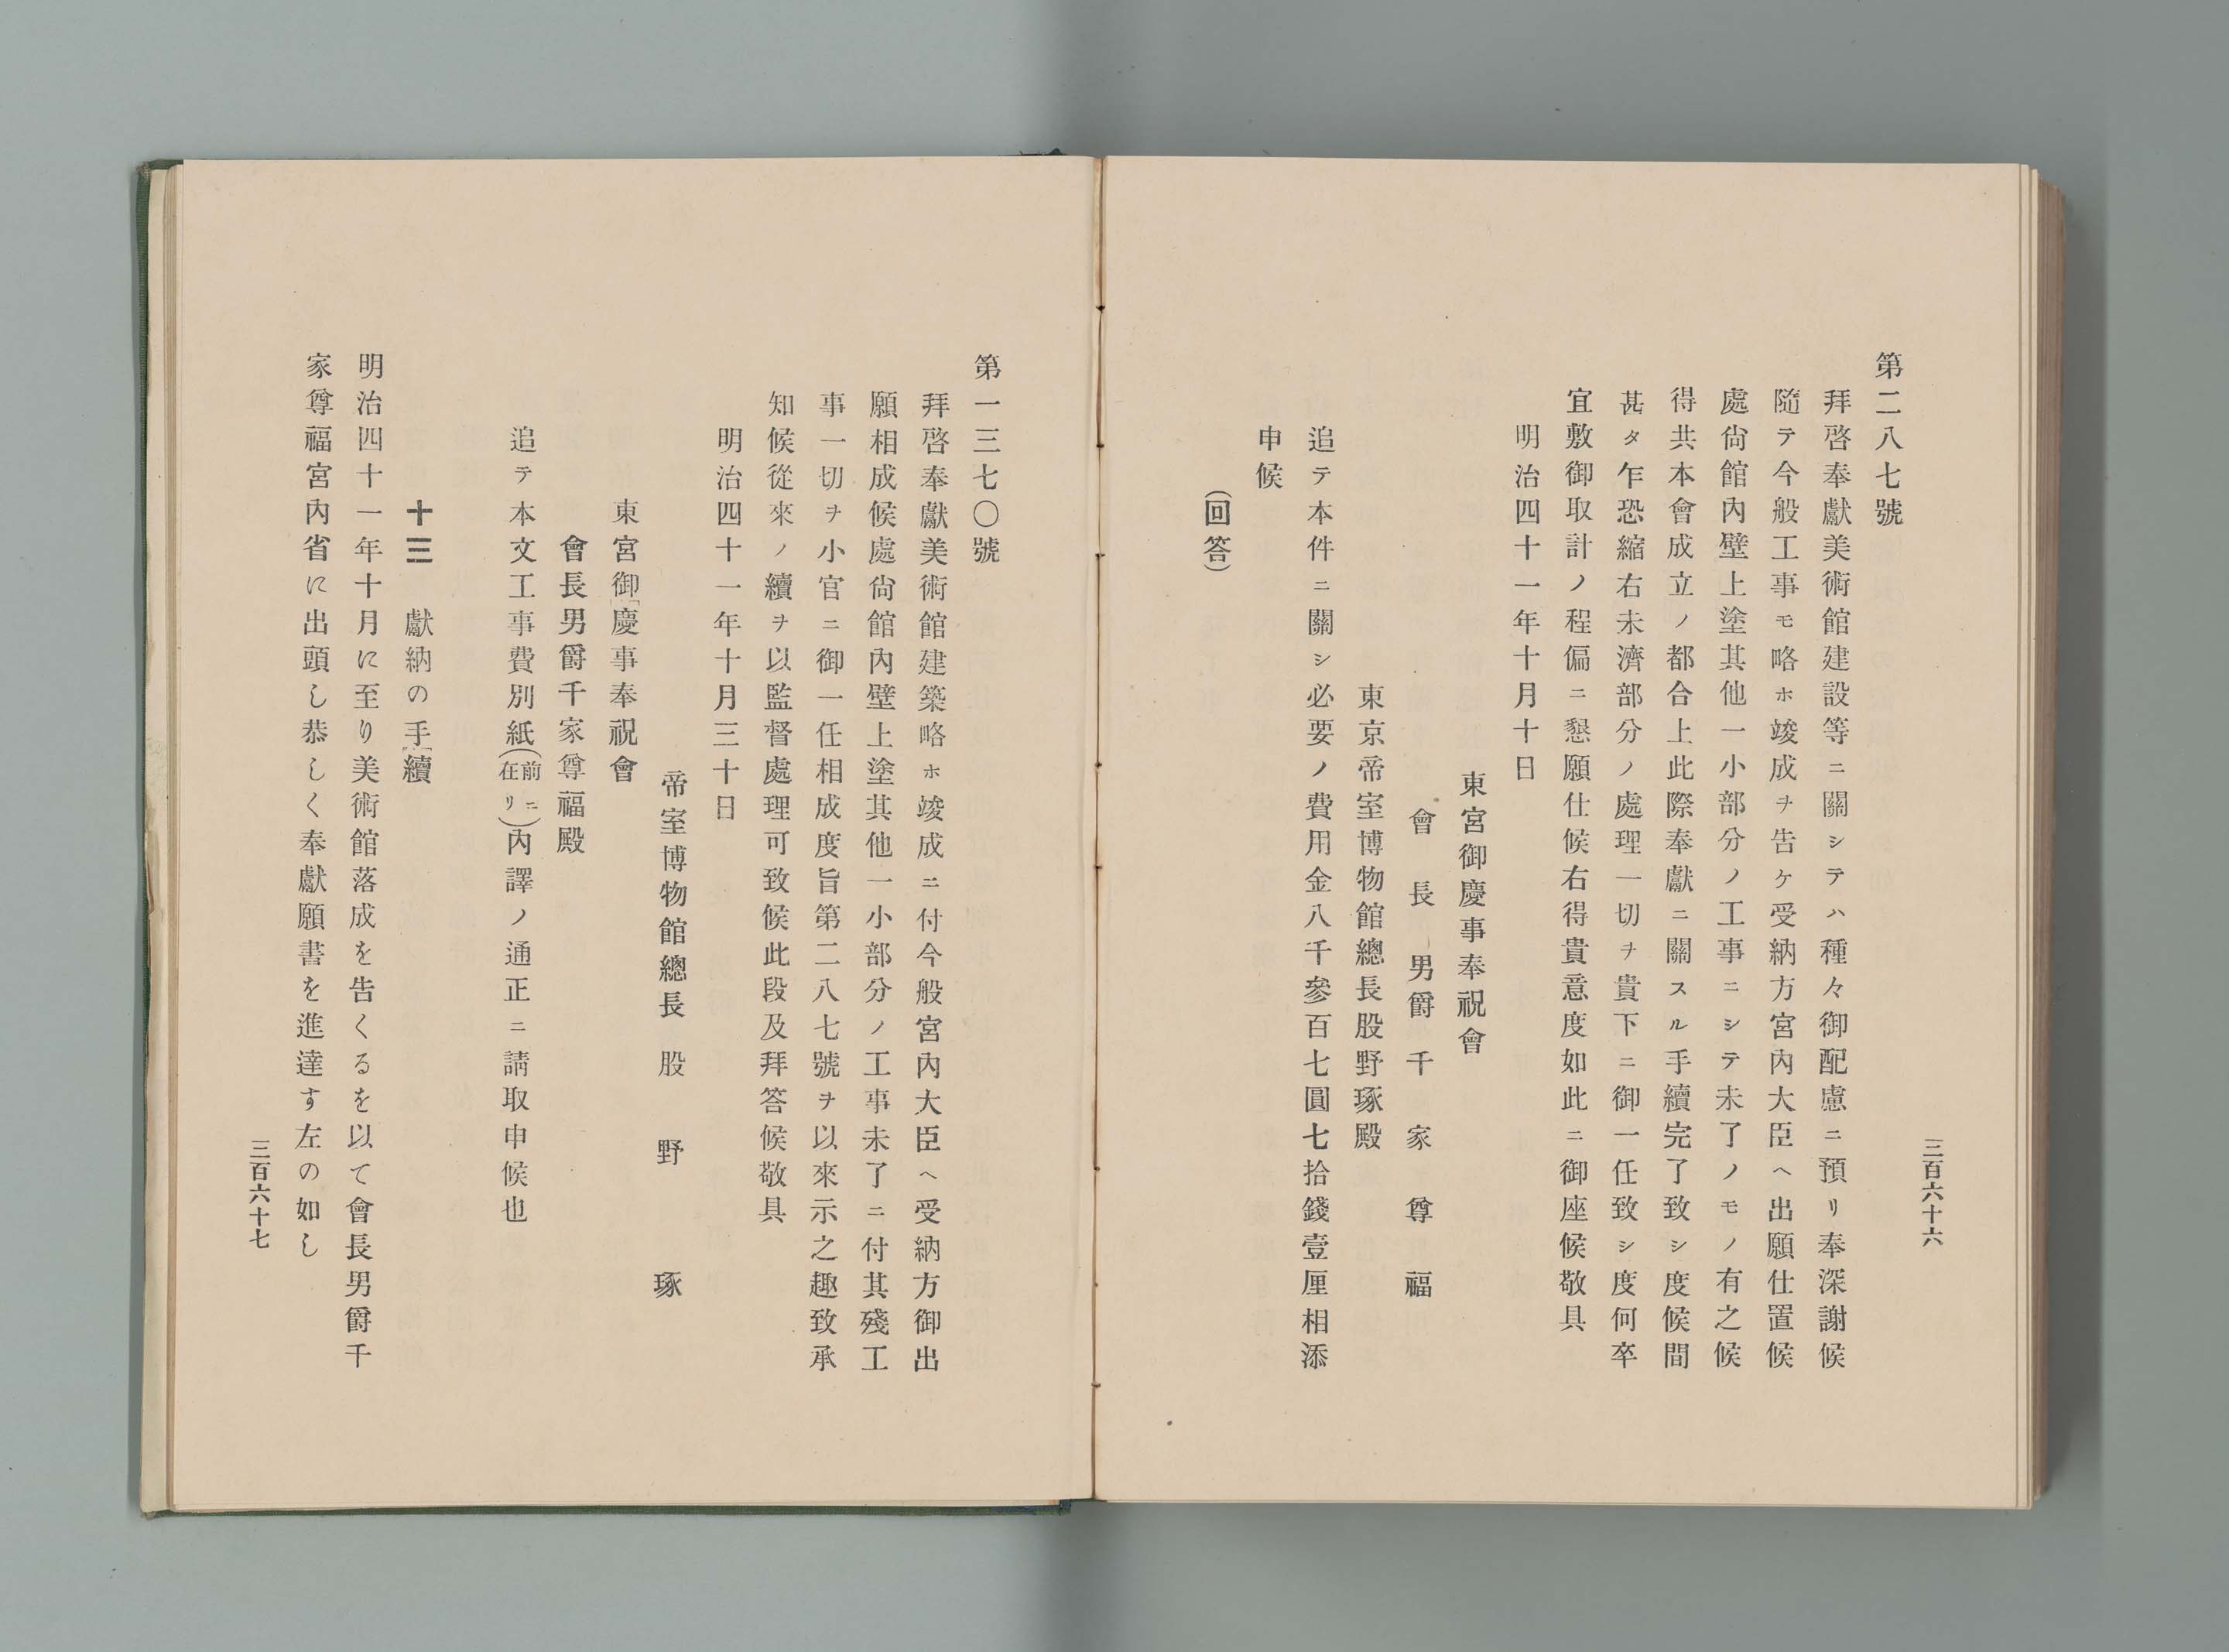 三百六十六
第二八七號
拜啓奉獻美術館建設等ニ關シテハ種々御配慮ニ預リ奉深謝候
隨テ今般工事モ略ホ竣成ヲ告ケ受納方宮內大臣ヘ出願仕置候
處尙館內壁上塗其他一小部分ノ工事ニシテ未了ノモノ有之候
得共本會成立ノ都合上此際奉獻ニ關スル手續完了致シ度候間
甚タ乍恐縮右未濟部分ノ處理一切ヲ貴下ニ御一任致シ度何卒
宜敷御取計ノ程偏ニ懇願仕候右得貴意度如此ニ御座候敬具
明治四十一年十月十日
東宮御慶事奉祝會
會長男爵千家尊福
東京帝室博物館總長股野琢殿
追テ本件ニ關シ必要ノ費用金八千參百七圓七拾錢壹厘相添
申候
(回答)
第一三七〇號
拜啓奉獻美術館建築略ホ竣成ニ付今般宮內大臣ヘ受納方御出
願相成候處尙館內壁上塗其他一小部分ノ工事未了ニ付其殘工
事一切ヲ小官ニ御一任相成度旨第二八七號ヲ以來示之趣致承
知候從來ノ續ヲ以監督處理可致候此段及拜答候敬具
明治四十一年十月三十日
帝室博物館總長 股野琢
東宮御慶事奉祝會
會長男爵千家尊福殿
追テ本文工事費別紙(前ニ在リ)內譯ノ通正ニ請取申候也
十三 獻納の手續
明治四十一年十月に至り美術館落成を告くるを以て會長男爵千
家尊福宮內省に出頭し恭しく奉獻願書を進達す左の如し
三百六十七